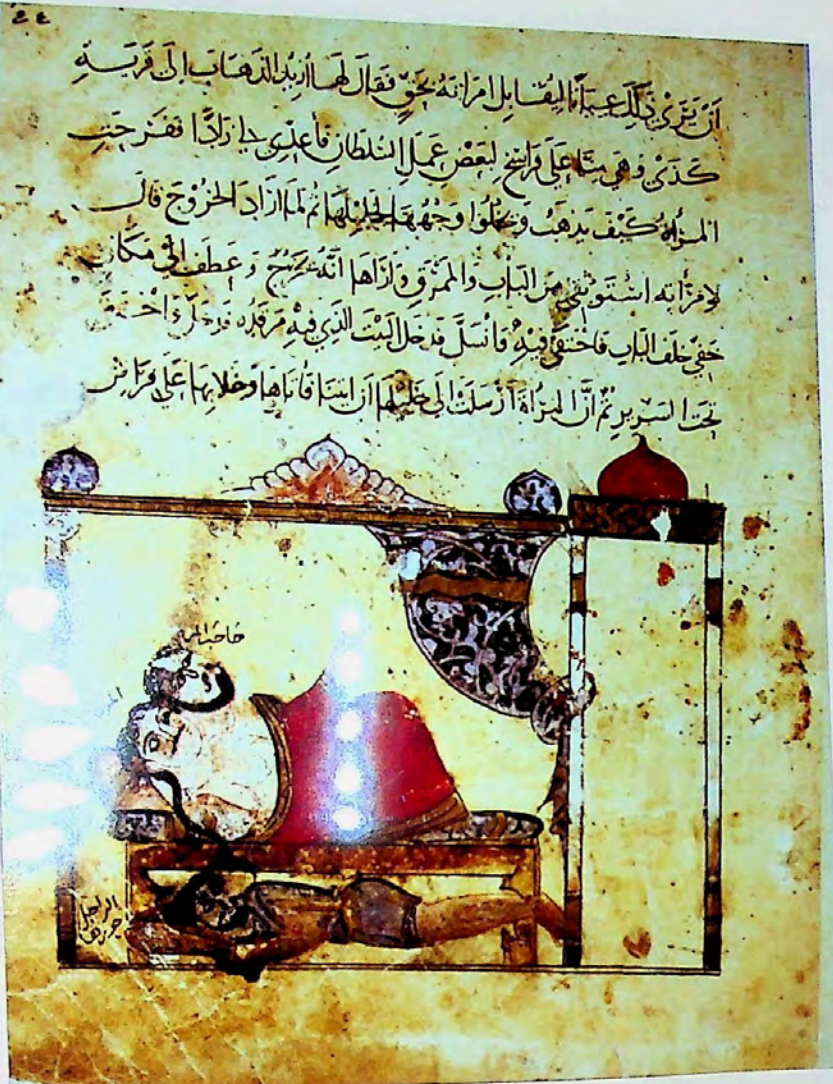 ان يرى ذلك عيانا ليقابل امراته بحق فقال لها اريد الذهاب الى قرية
كذى وهى منا على فراسخ لبعض عمل السلطان فاعدى لي زادا ففرحت
المرأة كيف يذهب ويخلوا وجهها لخليلها ثم لما اراد الخروج قال
لامراته استوثقى من الباب والممرق واراها انه يخرج وعطف الى مكان
خفي خلف الباب فاختفى فيه وانسل فدخل البيت الذي فيه مرقده فدخل
تحت السرير ثم ان المرأة ارسلت الى خليلها ان ايتنا فاتاها وخلا بها على فراش
صاحب
الراجل